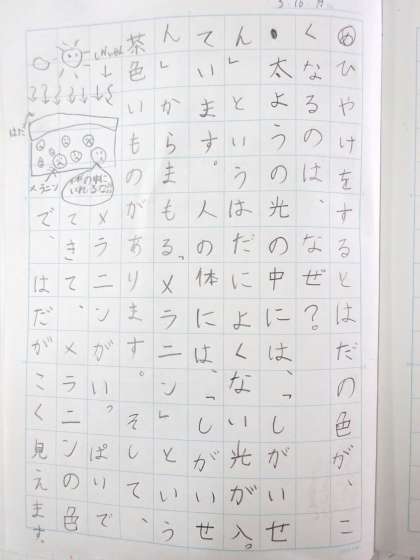 めひやけをするとはだの色が、こ
くなるのは、なぜ?
・太ようの光の中には、「しがいせ
ん」というはだによくない光が入っ
ています。人の体には、「しがいせ
ん」からまもる、「メラニン」という
茶色いものがあります。そして、
メラニンがいっぱいで
てきて、メラニンの色
で、はだがこく見えます。
しがいせん
はだ
メラニン